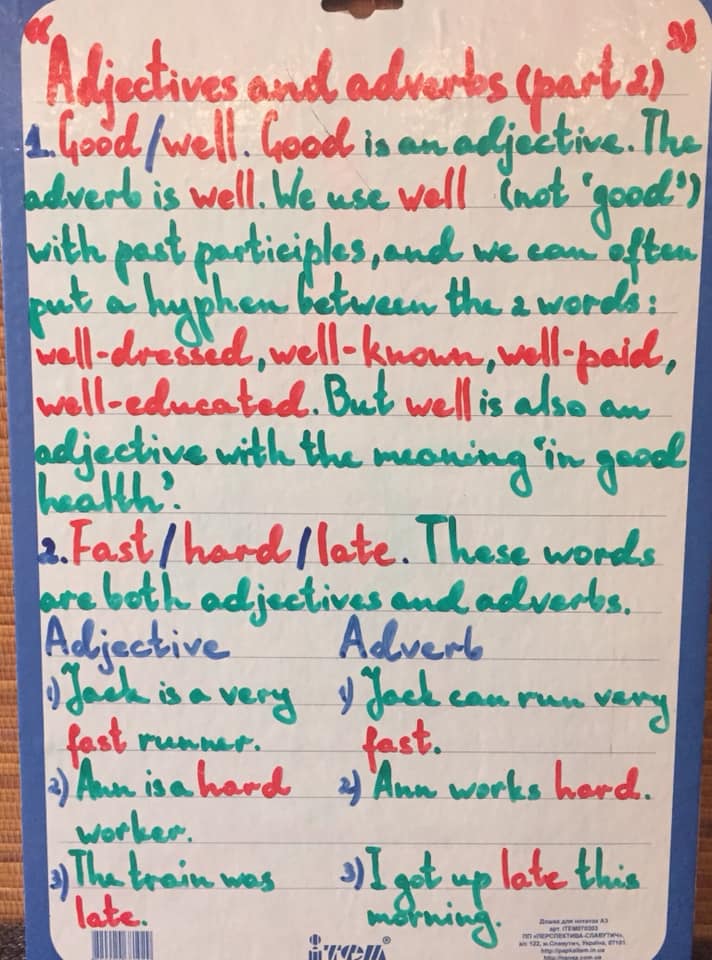 "Adjectives and adverbs (part 2)"
1. Good/well. Good is an adjective. The
adverb is well. We use well (not 'good')
with past participles, and we can often
put a hyphen between the 2 words:
well-dressed, well-known, well-paid,
well-educated. But well is also an
adjective with the meaning 'in good
health'.
2. Fast/hard/late. These words
are both adjectives and adverbs.
Adjective Adverb
1) Jack is a very 1) Jack can run very
fast runner. fast.
2) Ann is a hard 2) Ann works hard.
worker.
3) The train was 3) I got up late this
late. morning.
item
Дошка для нотаток А3
арт. ITEM070303
ПП «ПЕРСПЕКТИВА-СЛАВУТИЧ»,
а/с 122, м.Славутич, Україна, 07101.
http://papkaitem.in.ua